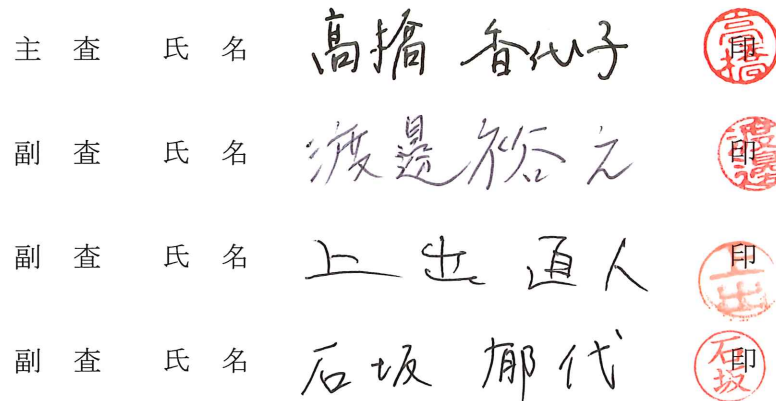 主 査 氏 名 高橋 香代子 印 高橋
副 査 氏 名 渡邊裕之 印 渡邊
副 査 氏 名 上出 直人 印 上出
副 査 氏 名 石坂 郁代 印 石坂